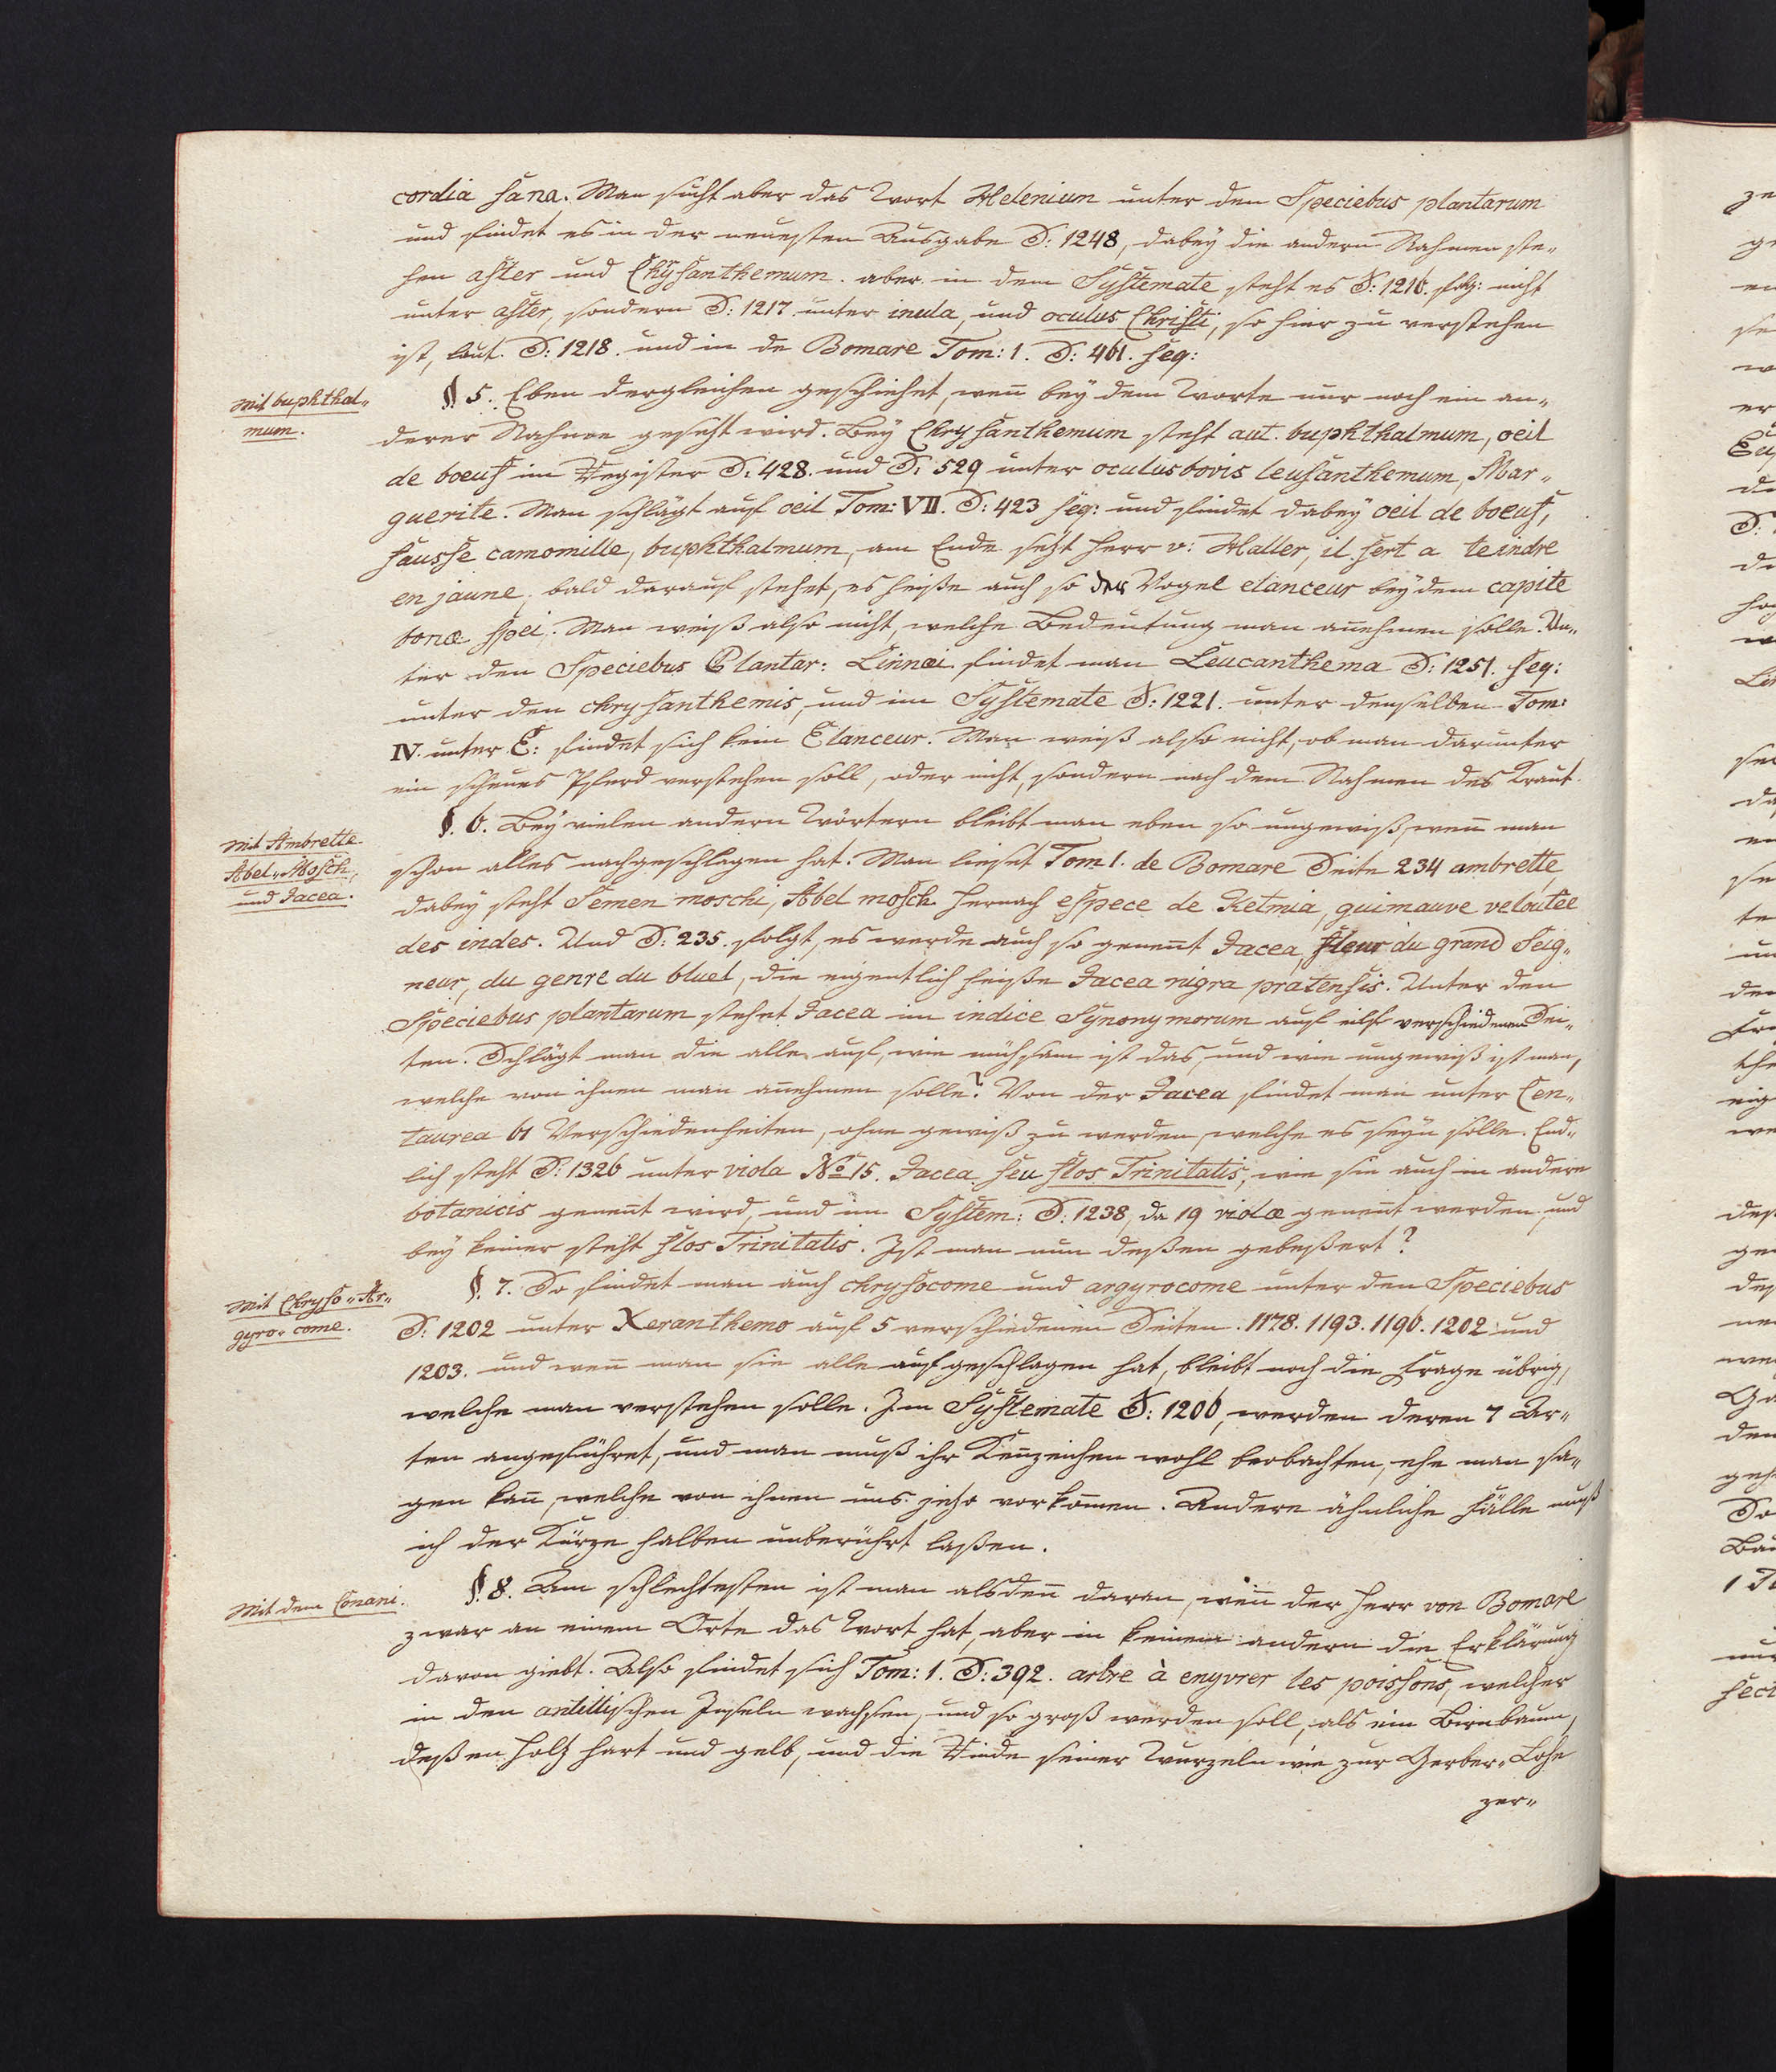 cordia sana. Man sucht aber das Wort Helenium unter den Speciebus plantarum
und findet es in der neuesten Ausgabe S: 1248, dabey die andern Nahmen ste„
hen aster und Chÿsanthemum. aber in dem Systemate steht es S: 1216. flg: nicht
unter aster, sondern S: 1217 unter inula, und oculus Christi, so hier zu verstehen
ist, laut. S: 1218. und in de Bomare Tom: 1. S: 461. seq:
Mit buphthal„
mum.
§ 5. Eben dergleichen geschiehet, weñ bey dem Worte nur noch ein an„
derer Nahme gesetzt wird. Bey Chrysanthemum steht aut. buphthalmum, oeil
de boeuf im Register S: 428. und S: 529 unter oculus bovis leusanthemum, Mar„
guerite. Man schlägt auf oeil Tom: VII. S: 423 seq: und findet dabey oeil de boeuf,
fausse camomille, buphthalmum, am Ende setzt Herr v: Haller, il sert a teindre
en jaune, bald darauf stehet, es heiße auch so der Vogel elanceur bey dem capite
bonæ spei. Man weiß also nicht, welche Bedeutung man añehmen solle. Un„
ter den Speciebus Plantar: Linnæi findet man Leucanthema S: 1251. seq:
unter den chrysanthemis, und im Systemate S: 1221. unter denselben Tom:
IV. unter E: findet sich kein Elanceur. Man weiß also nicht, ob man darunter
ein scheues Pferd verstehen soll, oder nicht, sondern nach dem Nahmen des Kraut.
Mit Ambrette
Abel„Mosch,
und Jacea.
§. 6. Bey vielen andern Wörtern bleibt man eben so ungewiß, weñ man
schon alles nachgeschlagen hat. Man lieset Tom 1. de Bomare Seite 234 ambrette,
dabey steht Semen moschi, Abel mosch hernach espece de Ketmia, guimauve veloutée
des indes. Und S: 235. folgt, es werde auch so geneñt Jacea, fleur du grand Seig„
neur, du genre du bluet, die eigentlich heiße Jacea nigra pratensis. Unter den
Speciebus plantarum stehet Jacea im indice Synonymorum auf eilf verschiedenen Sei„
ten. Schlägt man die alle auf, wie mühsam ist das, und wie ungewiß ist man,
welche von ihnen man añehmen solle? Von der Jacea findet man unter Cen„
taurea 61 Verschiedenheiten, ohne gewiß zu werden, welche es seyn solle. End„
lich steht S: 1326 unter viola No 15. Jacea seu flos Trinitatis, wie sie auch in andern
botanicis geneñt wird, und im System: S: 1238, da 19 violæ geneñt werden, und
bey keiner steht flos Trinitatis. Ist man nun deßen gebeßert?
Mit Chryso„Ar„
gyro„come.
§. 7. So findet man auch chrysocome und argyrocome unter den Speciebus
S: 1202 unter Xeranthemo auf 5 verschiedenen Seiten. 1178. 1193. 1196. 1202 und
1203. und weñ man sie alle aufgeschlagen hat, bleibt noch die Frage übrig,
welche man verstehen solle. Im Systemate S: 1206, werden deren 7 Ar„
ten angeführet, und man muß ihr Keñzeichen wohl beobachten, ehe man sa„
gen kañ, welche von ihnen uns jetzo vorkom̃en. Andere ähnliche Fälle muß
ich der Kürze halben unberührt laßen.
Mit dem Conani.
§. 8. Am schlechtesten ist man alsdeñ daran, weñ der Herr von Bomare
zwar an einem Orte das Wort hat, aber in keinem andern die Erklärung
davon giebt. Also findet sich Tom: 1. S: 392. arbre à enyvrer les poissons, welcher
in den antillischen Inseln wachsen, und so groß werden soll, als ein Birnbaum,
deßen Holz hart und gelb, und die Rinde seiner Wurzeln wie zur Gerber„Lohe
zer„